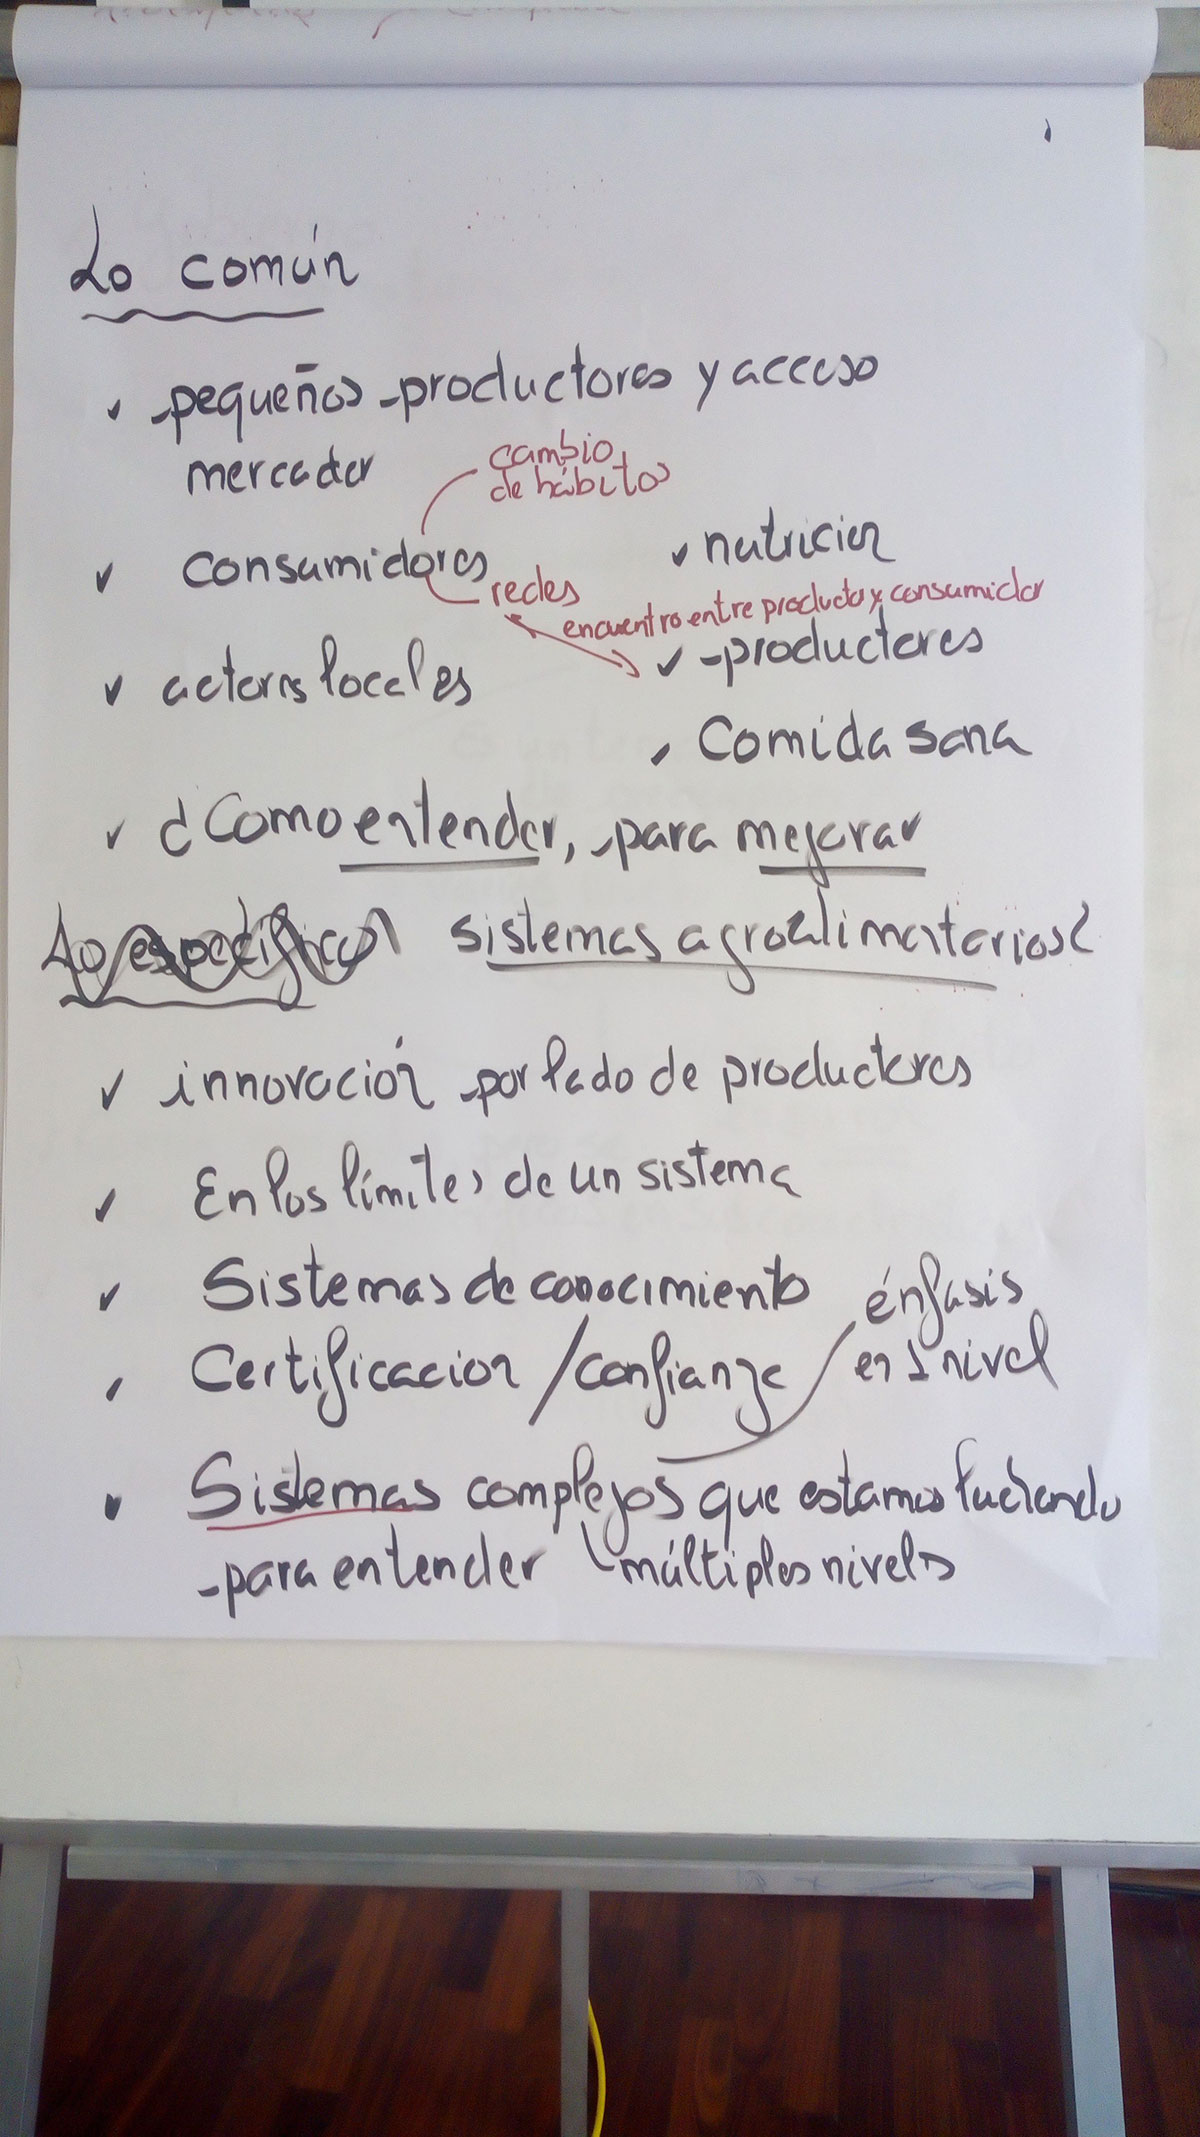 Lo común
pequeños productores y acceso
mercader
cambio
de hábitos
consumidores
nutricion
redes
encuentro entre productor y consumidor
actores locales
productores
Comida sana
¿Como entender, para mejorar
Lo específico
sistemas agroalimentarios?
innovación por lado de productores
En los límites de un sistema
Sistemas de conocimiento
énfasis
en 1 nivel
Certificacion / confianza
Sistemas complejos que estamos
para entender
múltiples niveles